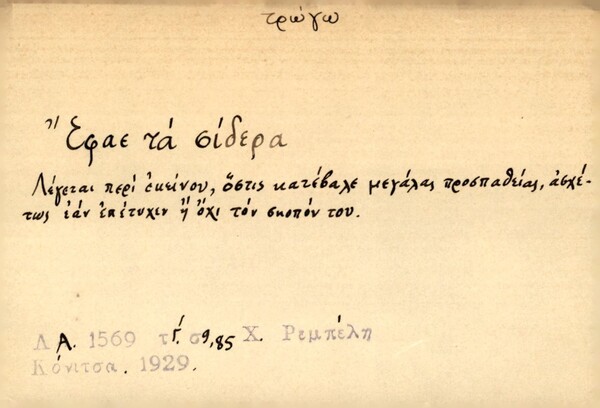 τρώγω
Ἔφαε τά σίδερα
Λέγεται περί ἐκείνου, ὅστις κατέβαλε μεγάλας προσπαθείας, ἀσχέ-
τως ἐάν ἐπέτυχεν ἤ ὄχι τόν σκοπόν του.
Λ.Α. 1569 τ.Γ. σ 9,85 Χ. Ρεμπέλη
Κόνιτσα. 1929.